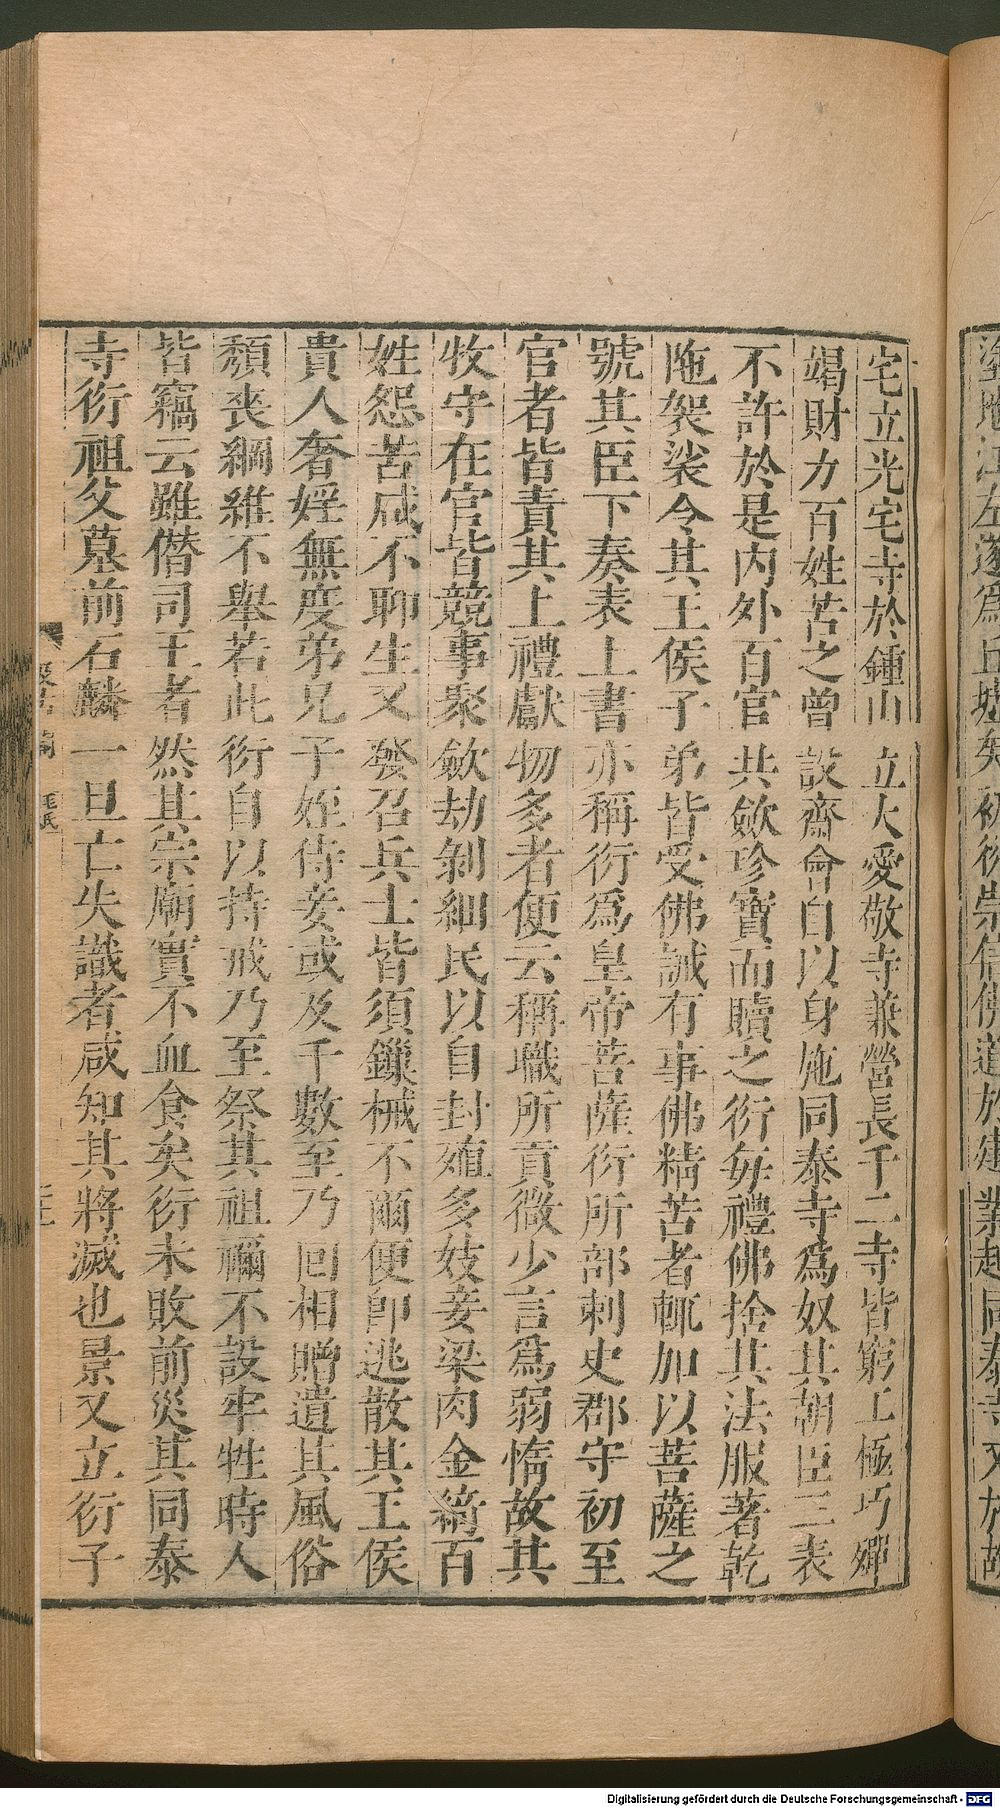 宅立光宅寺於鍾山立大愛敬寺兼營長千二寺皆窮工極巧殫
竭財力百姓苦之曾設齋會自以身施同泰寺為奴其朝臣三表
不許於是内外百官共歛珍寶而贖之衍毎禮佛捨其法服著乾
陁袈裟令其王侯子弟皆受佛誡有事佛精苦者輒加以菩薩之
號其臣下奏表上書亦稱衍爲皇帝菩薩衍所部刺史郡守初至
官者皆責其上禮獻物多者便云稱職所貢微少言爲弱惰故其
牧守在官皆競事聚歛劫剝細民以自封殖多妓妾梁肉金綺百
姓怨苦咸不聊生又發召兵士皆須鏁械不爾便即逃散其王侯
貴人奢婬無度弟兄子姪侍妾或及千數至乃回相贈遺其風俗
頽喪綱維不舉若此衍自以持戒乃至祭其祖禰不設牢牲時人
皆竊云雖僭司王者然其宗廟實不血食矣衍未敗前災其同泰
寺衍祖父墓前石麟一旦亡失識者咸知其將滅也景又立衍子
Digitalisierung gefördert durch die Deutsche Forschungsgemeinschaft - DFG